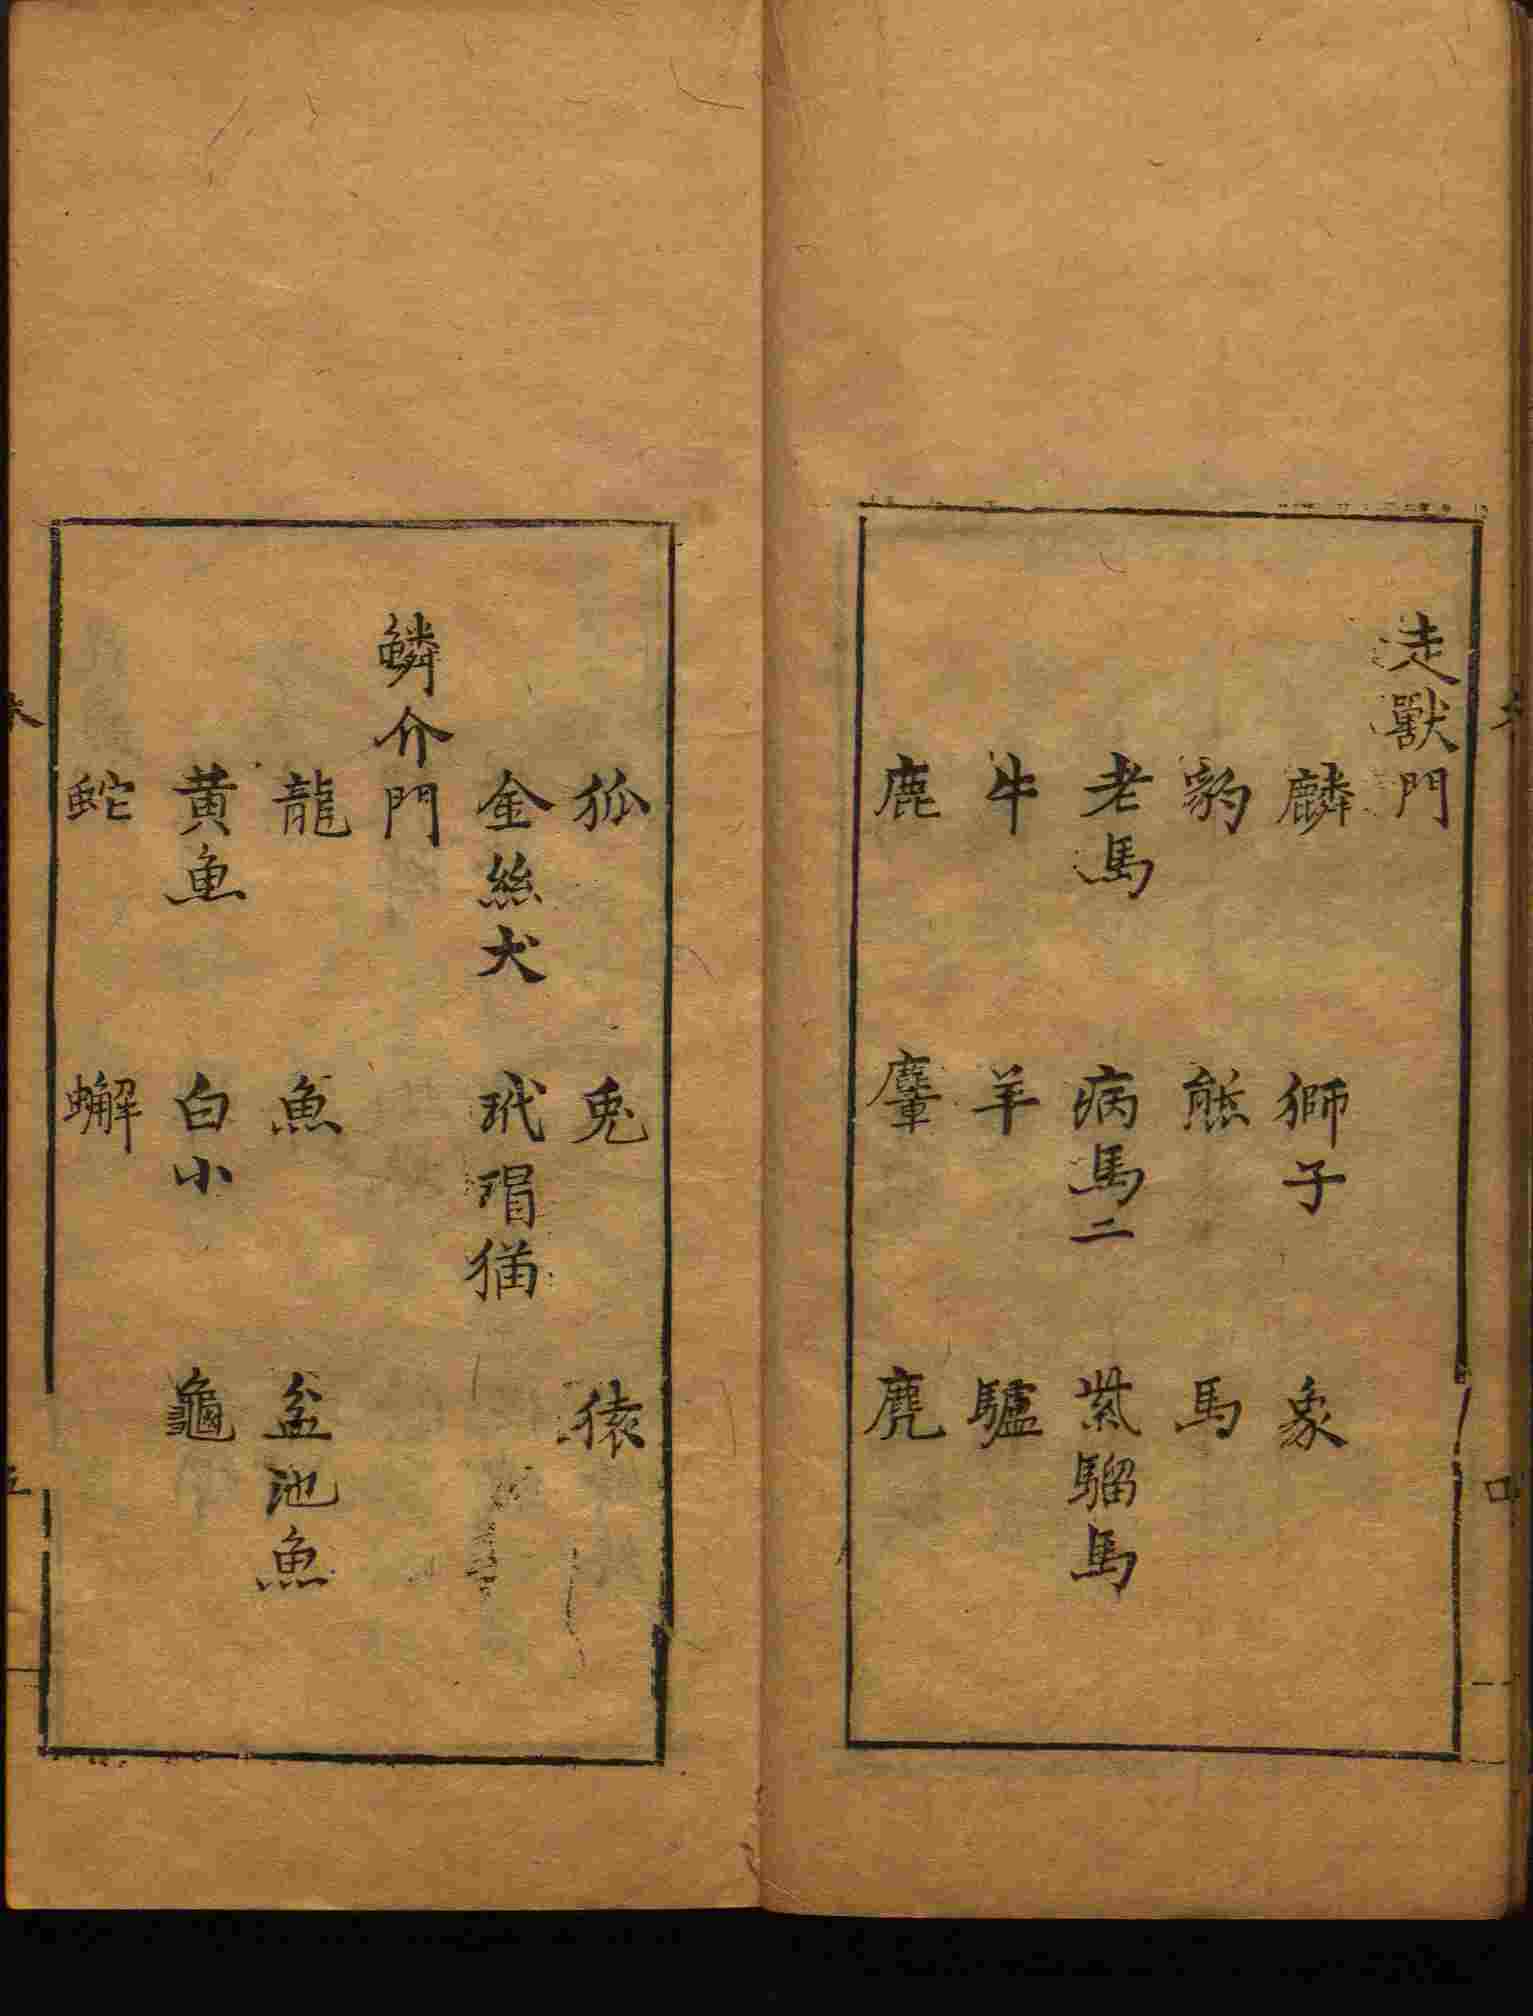 走獸門
麟 獅子 象
豹 熊 馬
老馬 病馬二 紫騮馬
牛 羊 驢
鹿 麞 麂
狐 兎 猿
金絲犬 玳瑁猫
鱗介門
龍 魚 盆池魚
黄魚 白小 龜
蛇 蠏